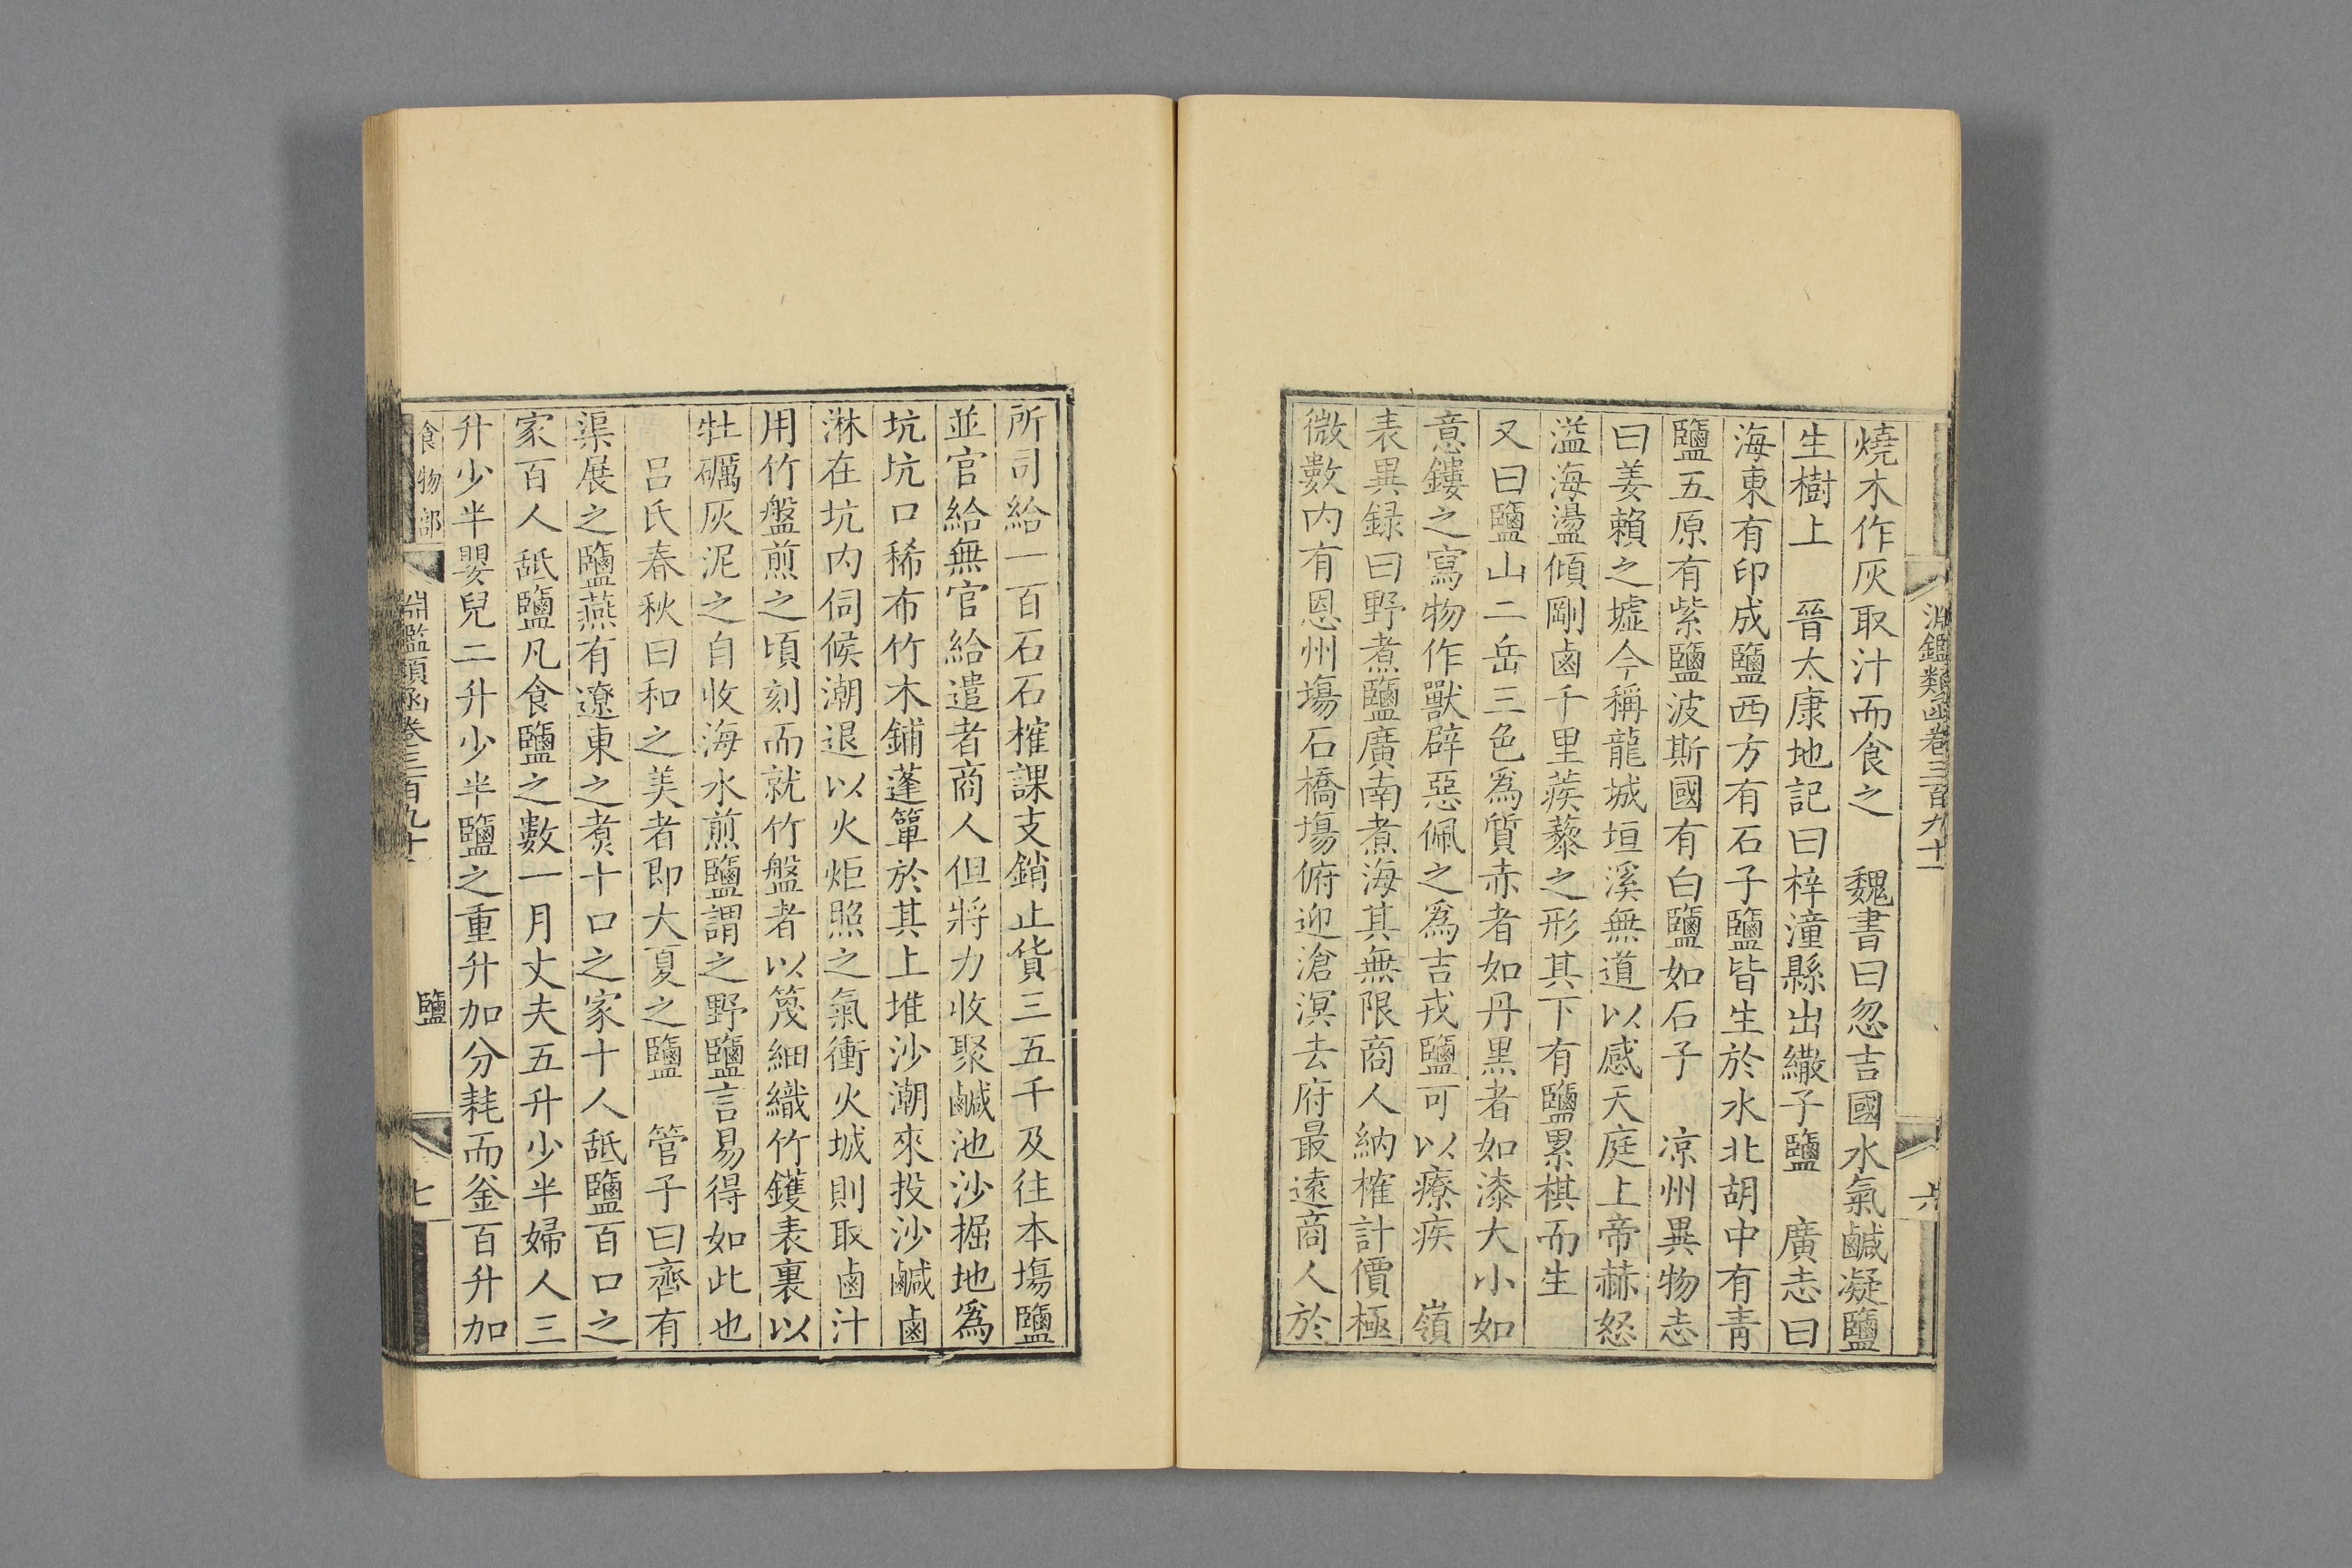 淵鑑類函卷三百九十一
六
燒木作灰取汁而食之　魏書曰忽吉國水氣鹹凝鹽
生樹上　晉太康地記曰梓潼縣出繖子鹽　廣志曰
海東有印成鹽西方有石子鹽皆生於水北胡中有青
鹽五原有紫鹽波斯國有白鹽如石子　凉州異物志
曰姜賴之墟今稱龍城垣溪無道以感天庭上帝赫怒
溢海盪傾剛鹵千里蒺藜之形其下有鹽累棋而生
又曰鹽山二岳三色爲質赤者如丹黑者如漆大小如
意鏤之寫物作獸辟惡佩之爲吉戎鹽可以療疾　嶺
表異録曰野煮鹽廣南煮海其無限商人納榷計價極
微數内有恩州塲石橋塲俯迎滄溟去府最遠商人於
所司給一百石石榷課支銷止貨三五千及往本塲鹽
並官給無官給遣者商人但將力收聚鹹池沙掘地爲
坑坑口稀布竹木鋪蓬簟於其上堆沙潮來投沙鹹鹵
淋在坑内伺候潮退以火炬照之氣衝火城則取鹵汁
用竹盤煎之頃刻而就竹盤者以篾細織竹鑊表裏以
牡礪灰泥之自收海水煎鹽謂之野鹽言易得如此也
呂氏春秋曰和之美者即大夏之鹽　管子曰齊有
渠展之鹽燕有遼東之煮十口之家十人䑛鹽百口之
家百人䑛鹽凡食鹽之數一月丈夫五升少半婦人三
升少半嬰兒二升少半鹽之重升加分耗而釜百升加
食物部
淵鑑類函卷三百九十一
鹽
七